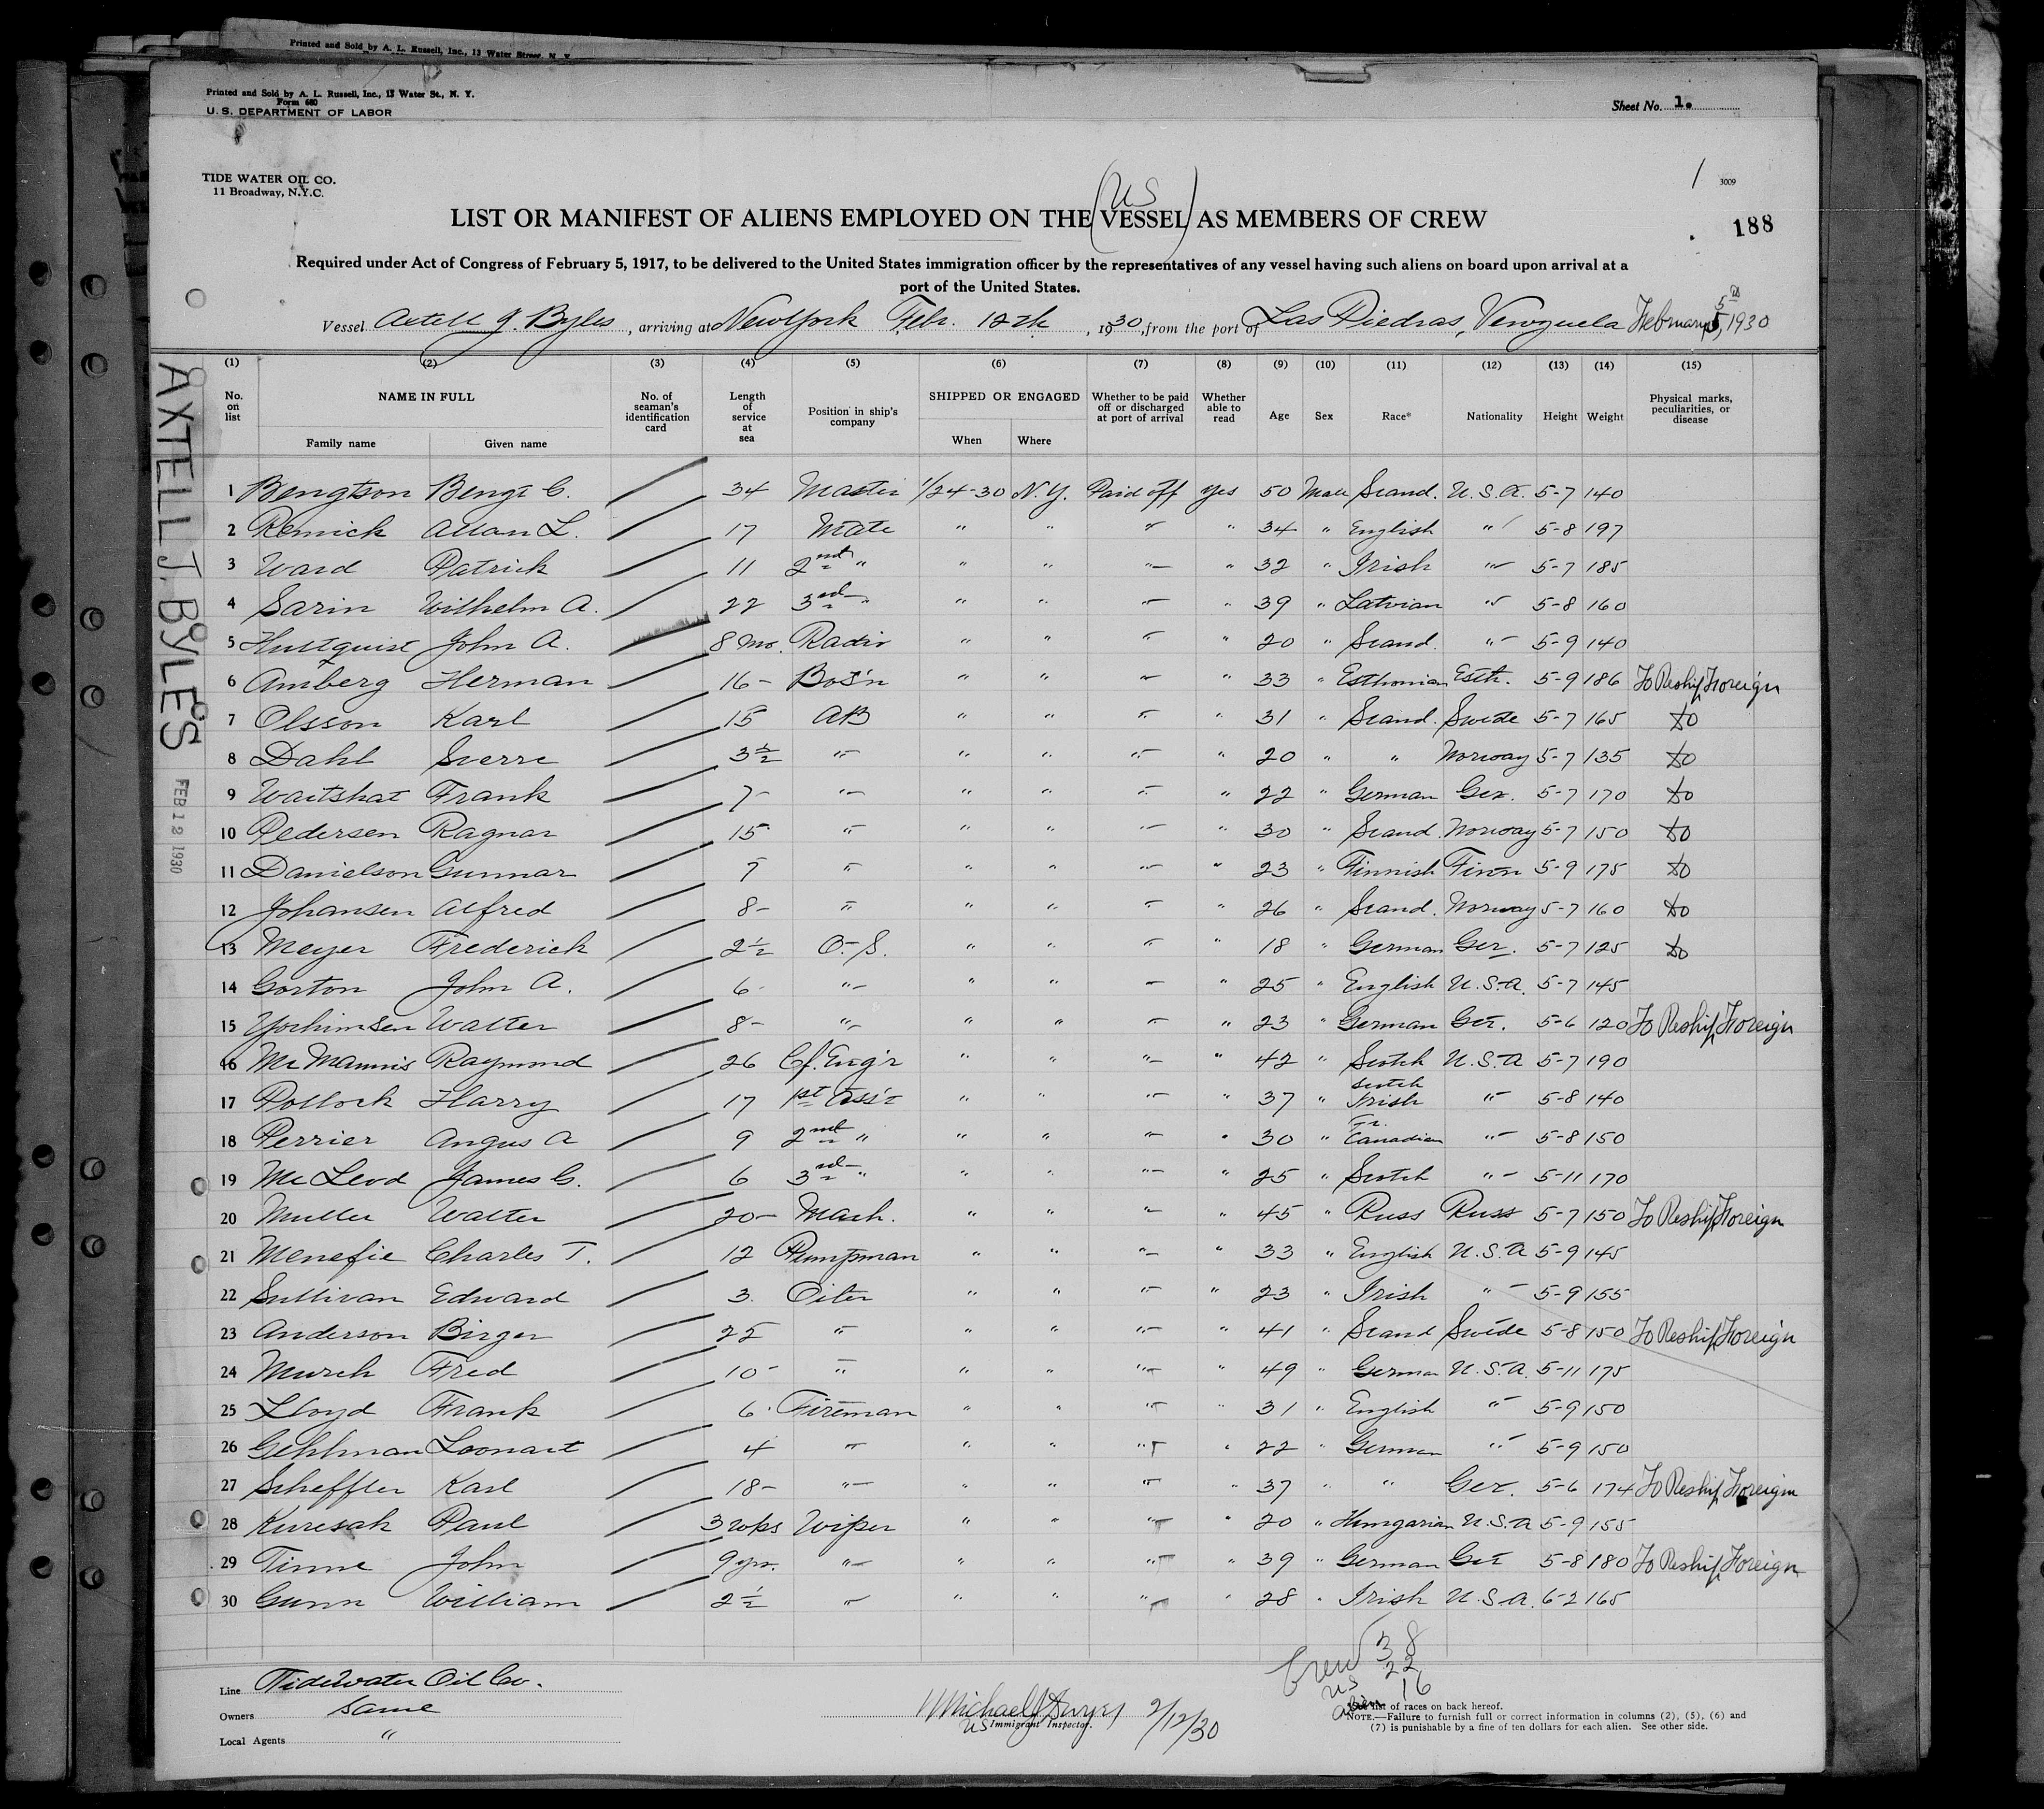 Printed and Sold by A. L. Russell, Inc., 13 Water Street, N. Y.
Printed and Sold by A. L. Russell, Inc., 13 Water St., N. Y.
Form 680
U. S. DEPARTMENT OF LABOR
Sheet No. 1.
TIDE WATER OIL CO.
11 Broadway, N.Y.C.
1 3009
188
US
LIST OR MANIFEST OF ALIENS EMPLOYED ON THE (VESSEL) AS MEMBERS OF CREW
Required under Act of Congress of February 5, 1917, to be delivered to the United States immigration officer by the representatives of any vessel having such aliens on board upon arrival at a
port of the United States.
Vessel Axtell J. Byles, arriving at New York Febr. 12th, 1930, from the port of Las Piedras, Venezuela February 5, 1930
AXTELL J. BYLES
FEB 12 1930
(1) (2) (3) (4) (5) (6) (7) (8) (9) (10) (11) (12) (13) (14) (15)
No. on list
NAME IN FULL
Family name Given name
No. of seaman's identification card
Length of service at sea
Position in ship's company
SHIPPED OR ENGAGED
When Where
Whether to be paid off or discharged at port of arrival
Whether able to read
Age Sex Race* Nationality Height Weight
Physical marks, peculiarities, or disease
1 Bengtson Bengt C. 34 Master 1/24-30 N.Y. Paid off yes 50 Male Scand. U.S.A. 5-7 140
2 Remick Allan L. 17 Mate " " " " 34 " English " 5-8 197
3 Ward Patrick 11 2nd " " " " " 32 " Irish " 5-7 185
4 Sarin Wilhelm A. 22 3rd " " " " " 39 " Latvian " 5-8 160
5 Hultquist John A. 8 mo. Radio " " " " 20 " Scand. " 5-9 140
6 Amberg Herman 16 Bos'n " " " " 33 " Esthonian Esth. 5-9 186 To Reship Foreign
7 Olsson Karl 15 AB " " " " 31 " Scand. Swede 5-7 165 do
8 Dahl Sverre 3½ " " " " " 20 " " Norway 5-7 135 do
9 Waitshat Frank 7 " " " " " 22 " German Ger. 5-7 170 do
10 Pedersen Ragnar 15 " " " " " 30 " Scand. Norway 5-7 150 do
11 Danielson Gunnar 7 " " " " " 23 " Finnish Finn 5-9 175 do
12 Johansen Alfred 8 " " " " " 26 " Scand. Norway 5-7 160 do
13 Meyer Frederick 2½ O.S. " " " " 18 " German Ger. 5-7 125 do
14 Gorton John A. 6 " " " " " 25 " English U.S.A. 5-7 145
15 Yochimsen Walter 8 " " " " " 23 " German Ger. 5-6 120 To Reship Foreign
16 McMannis Raymond 26 Cf. Eng'r " " " " 42 " Scotch U.S.A 5-7 190
17 Pollock Harry 17 1st Ass't " " " " 37 " Scotch Irish " 5-8 140
18 Perrier Angus A 9 2nd " " " " " 30 " Fr. Canadian " 5-8 150
19 McLeod James G. 6 3rd " " " " " 25 " Scotch " 5-11 170
20 Muller Walter 20 Mach. " " " " 45 " Russ Russ 5-7 150 To Reship Foreign
21 Menefie Charles T. 12 Pumpman " " " " 33 " English U.S.A 5-9 145
22 Sullivan Edward 3. Oiler " " " " 23 " Irish " 5-9 155
23 Anderson Birger 22 " " " " " 41 " Scand Swede 5-8 150 To Reship Foreign
24 Murch Fred 10 " " " " " 49 " German U.S.A. 5-11 175
25 Lloyd Frank 6 Fireman " " " " 31 " English " 5-9 150
26 Gehlman Loonart 4 " " " " " 22 " German " 5-9 150
27 Scheffler Karl 18 " " " " " 37 " " Ger. 5-6 174 To Reship Foreign
28 Kuresak Paul 3 wks Wiper " " " " 20 " Hungarian U.S.A 5-9 155
29 Timme John 9 yrs. " " " " " 39 " German Ger 5-8 180 To Reship Foreign
30 Gunn William 2½ " " " " " 28 " Irish U.S.A. 6-2 165
Crew 38
US 22
Alien 16
Line Tidewater Oil Co.
Owners Same
Local Agents "
Michael J Dwyer 2/12/30
US Immigrant Inspector.
list of races on back hereof.
NOTE.—Failure to furnish full or correct information in columns (2), (5), (6) and
(7) is punishable by a fine of ten dollars for each alien. See other side.